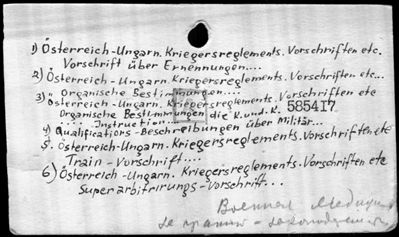 1) Österreich-Ungarn. Kriegersreglements. Vorschriften etc.
Vorschrift über Ernennungen....
2) Österreich-Ungarn. Kriegersreglements. Vorschriften etc...
" Organische Bestimmungen....
3) Österreich-Ungarn. Kriegersreglements. Vorschriften etc
Organische Bestimmungen die K.und.K. 585417
.... Instruction...
4) Qualifications-Beschreibungen über Militär...
5. Österreich-Ungarn. Kriegersreglements. Vorschriften etc
Train-Vorschrift....
6) Österreich-Ungarn. Kriegersreglements. Vorschriften etc
Superarbitrirungs-Vorschrift...